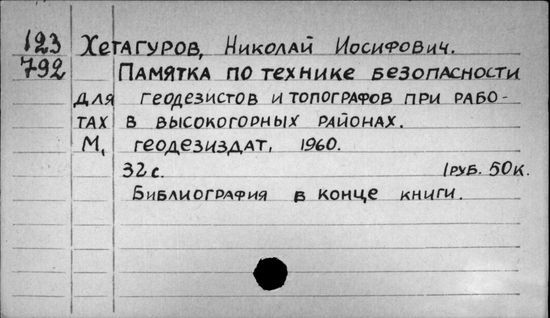 123 Хетагуров, Николай Иосифович.
792 Памятка по технике безопасности
для геодезистов и топографов при рабо-
тах в высокогорных районах.
М, геодезиздат, 1960.
32с. 1руб. 50к.
Библиография в конце книги.